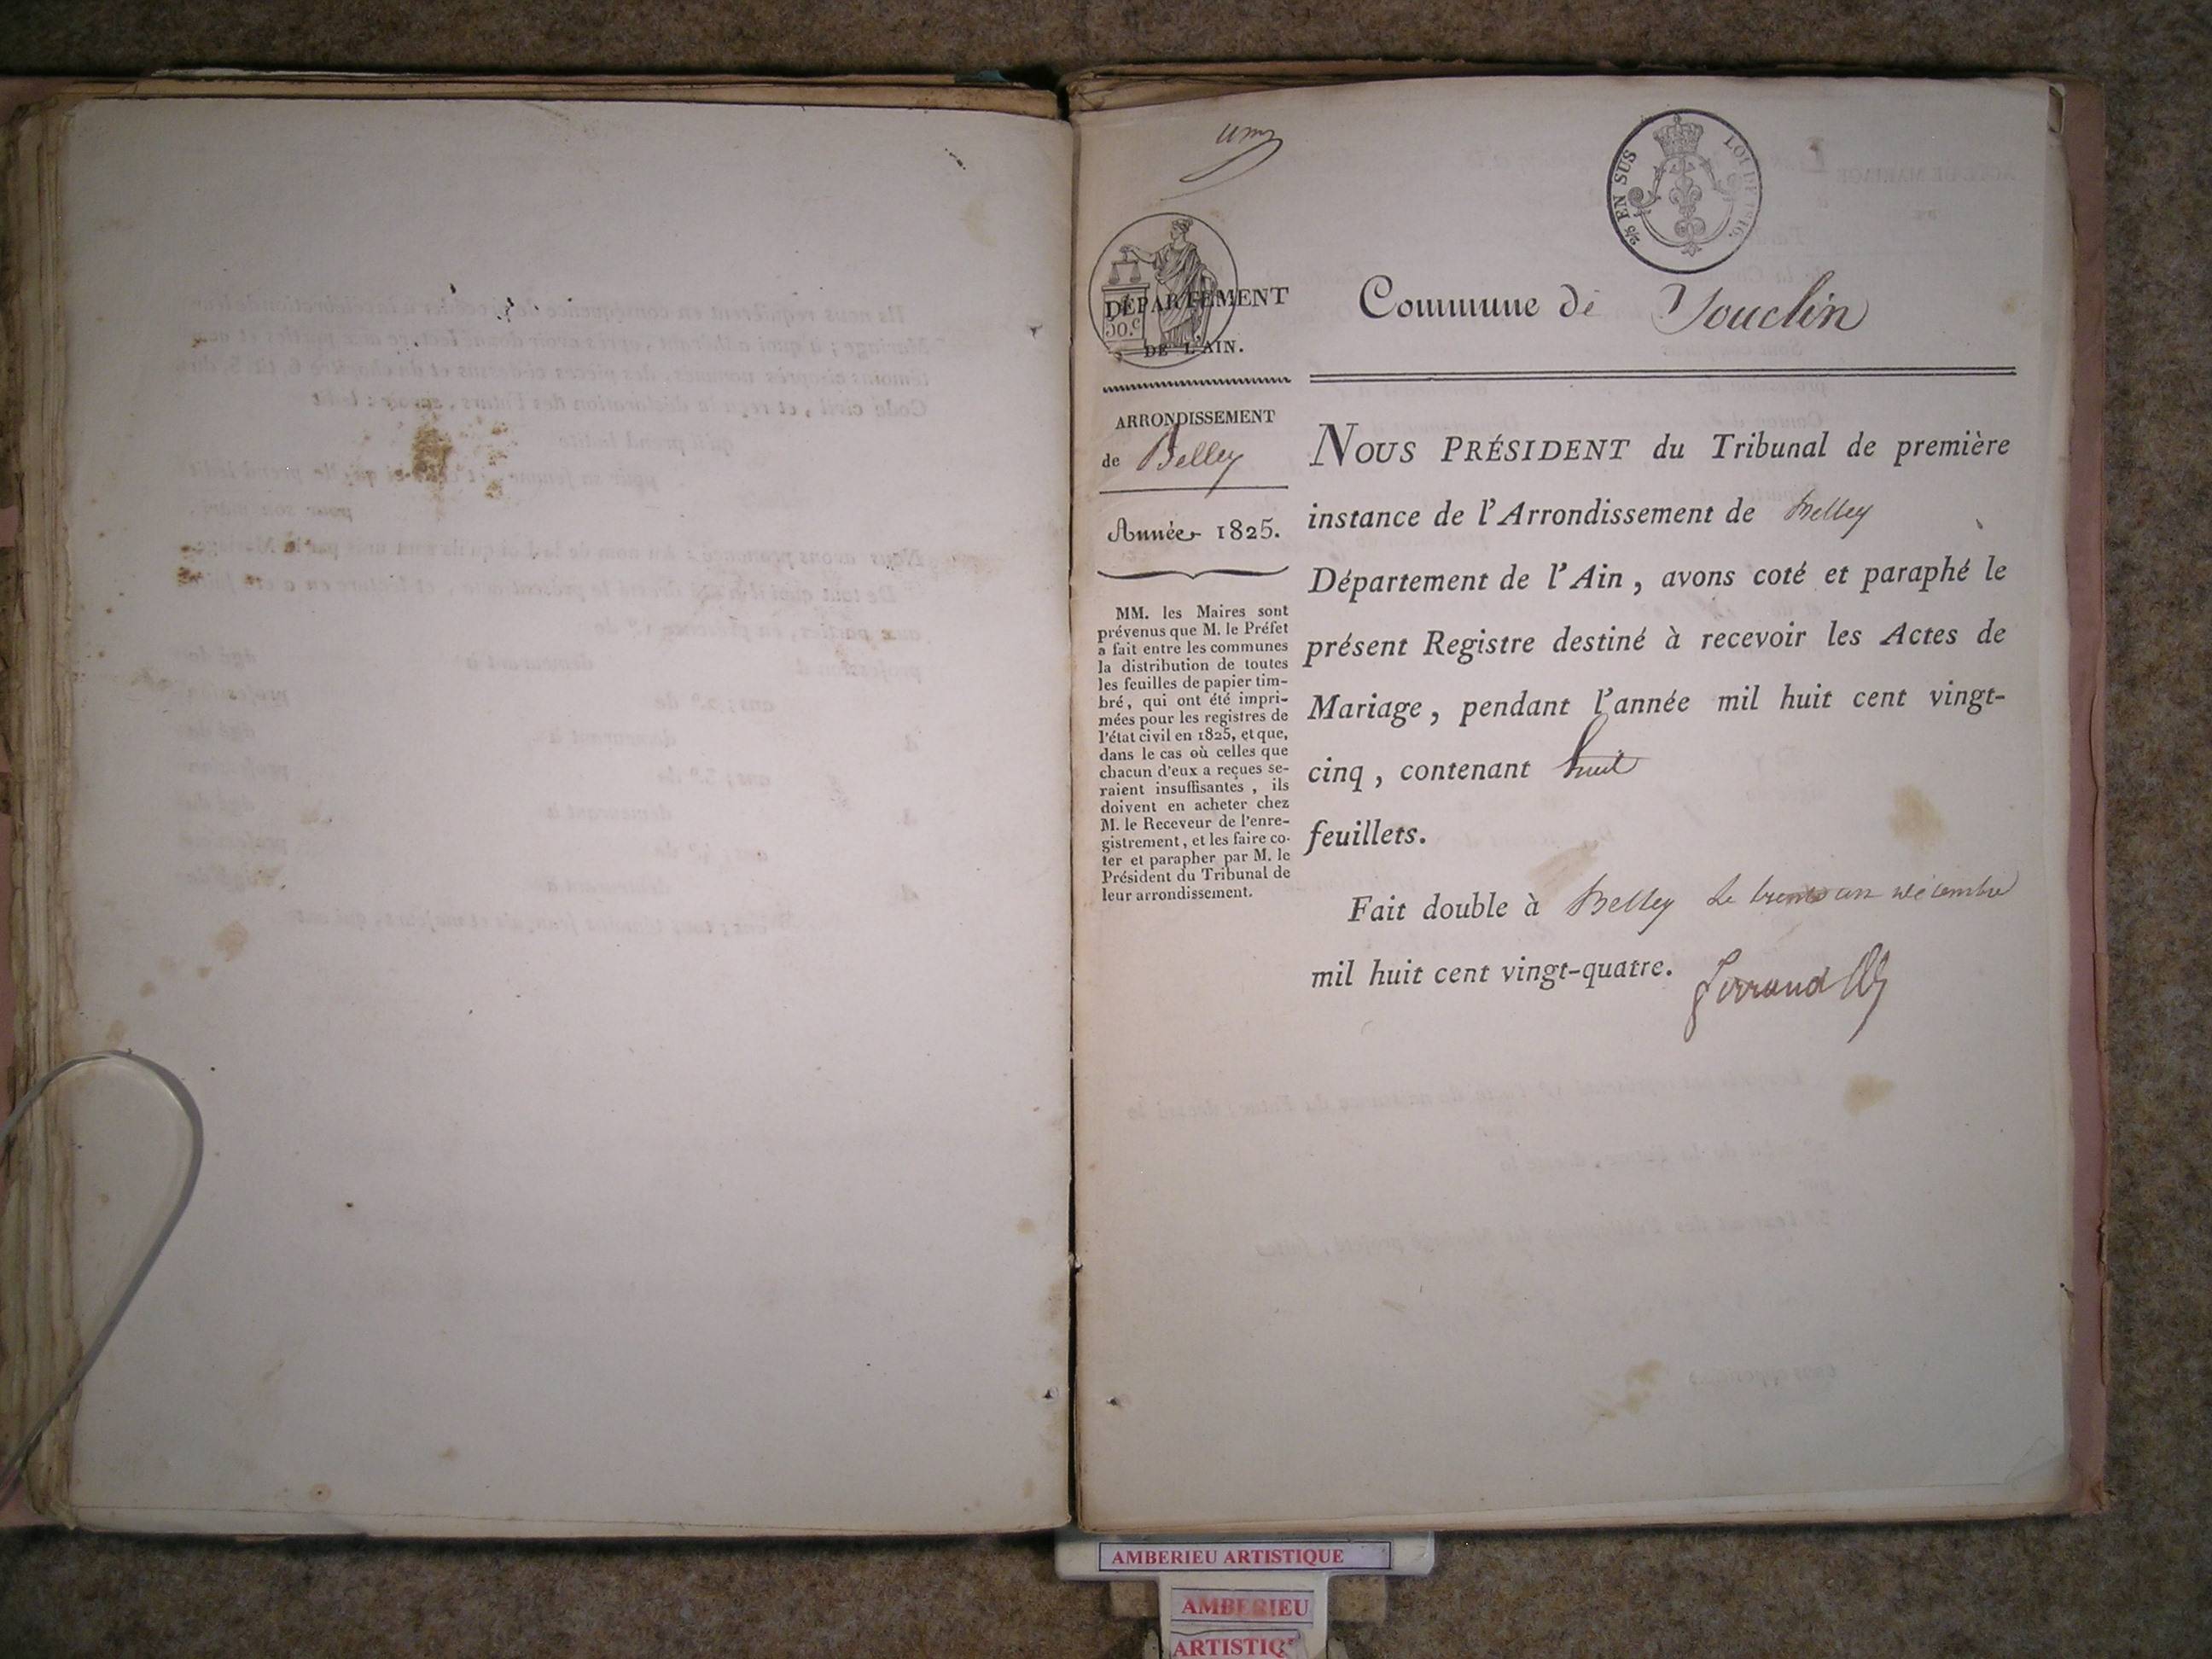 2/5 EN SUS LOI DE 1816.
DÉPARTEMENT
50.c
DE L'AIN.
Commune de Souclin
ARRONDISSEMENT
de Belley
Année 1825.
MM. les Maires sont
prévenus que M. le Préfet
a fait entre les communes
la distribution de toutes
les feuilles de papier tim-
bré, qui ont été impri-
mées pour les registres de
l'état civil en 1825, et que,
dans le cas où celles que
chacun d'eux a reçues se-
raient insuffisantes, ils
doivent en acheter chez
M. le Receveur de l'enre-
gistrement, et les faire co-
ter et parapher par M. le
Président du Tribunal de
leur arrondissement.
NOUS PRÉSIDENT du Tribunal de première
instance de l'Arrondissement de Belley
Département de l'Ain, avons coté et paraphé le
présent Registre destiné à recevoir les Actes de
Mariage, pendant l'année mil huit cent vingt-
cinq, contenant huit
feuillets.
Fait double à Belley le trente un décembre
mil huit cent vingt-quatre.
AMBERIEU ARTISTIQUE
AMBERIEU
ARTISTIQ